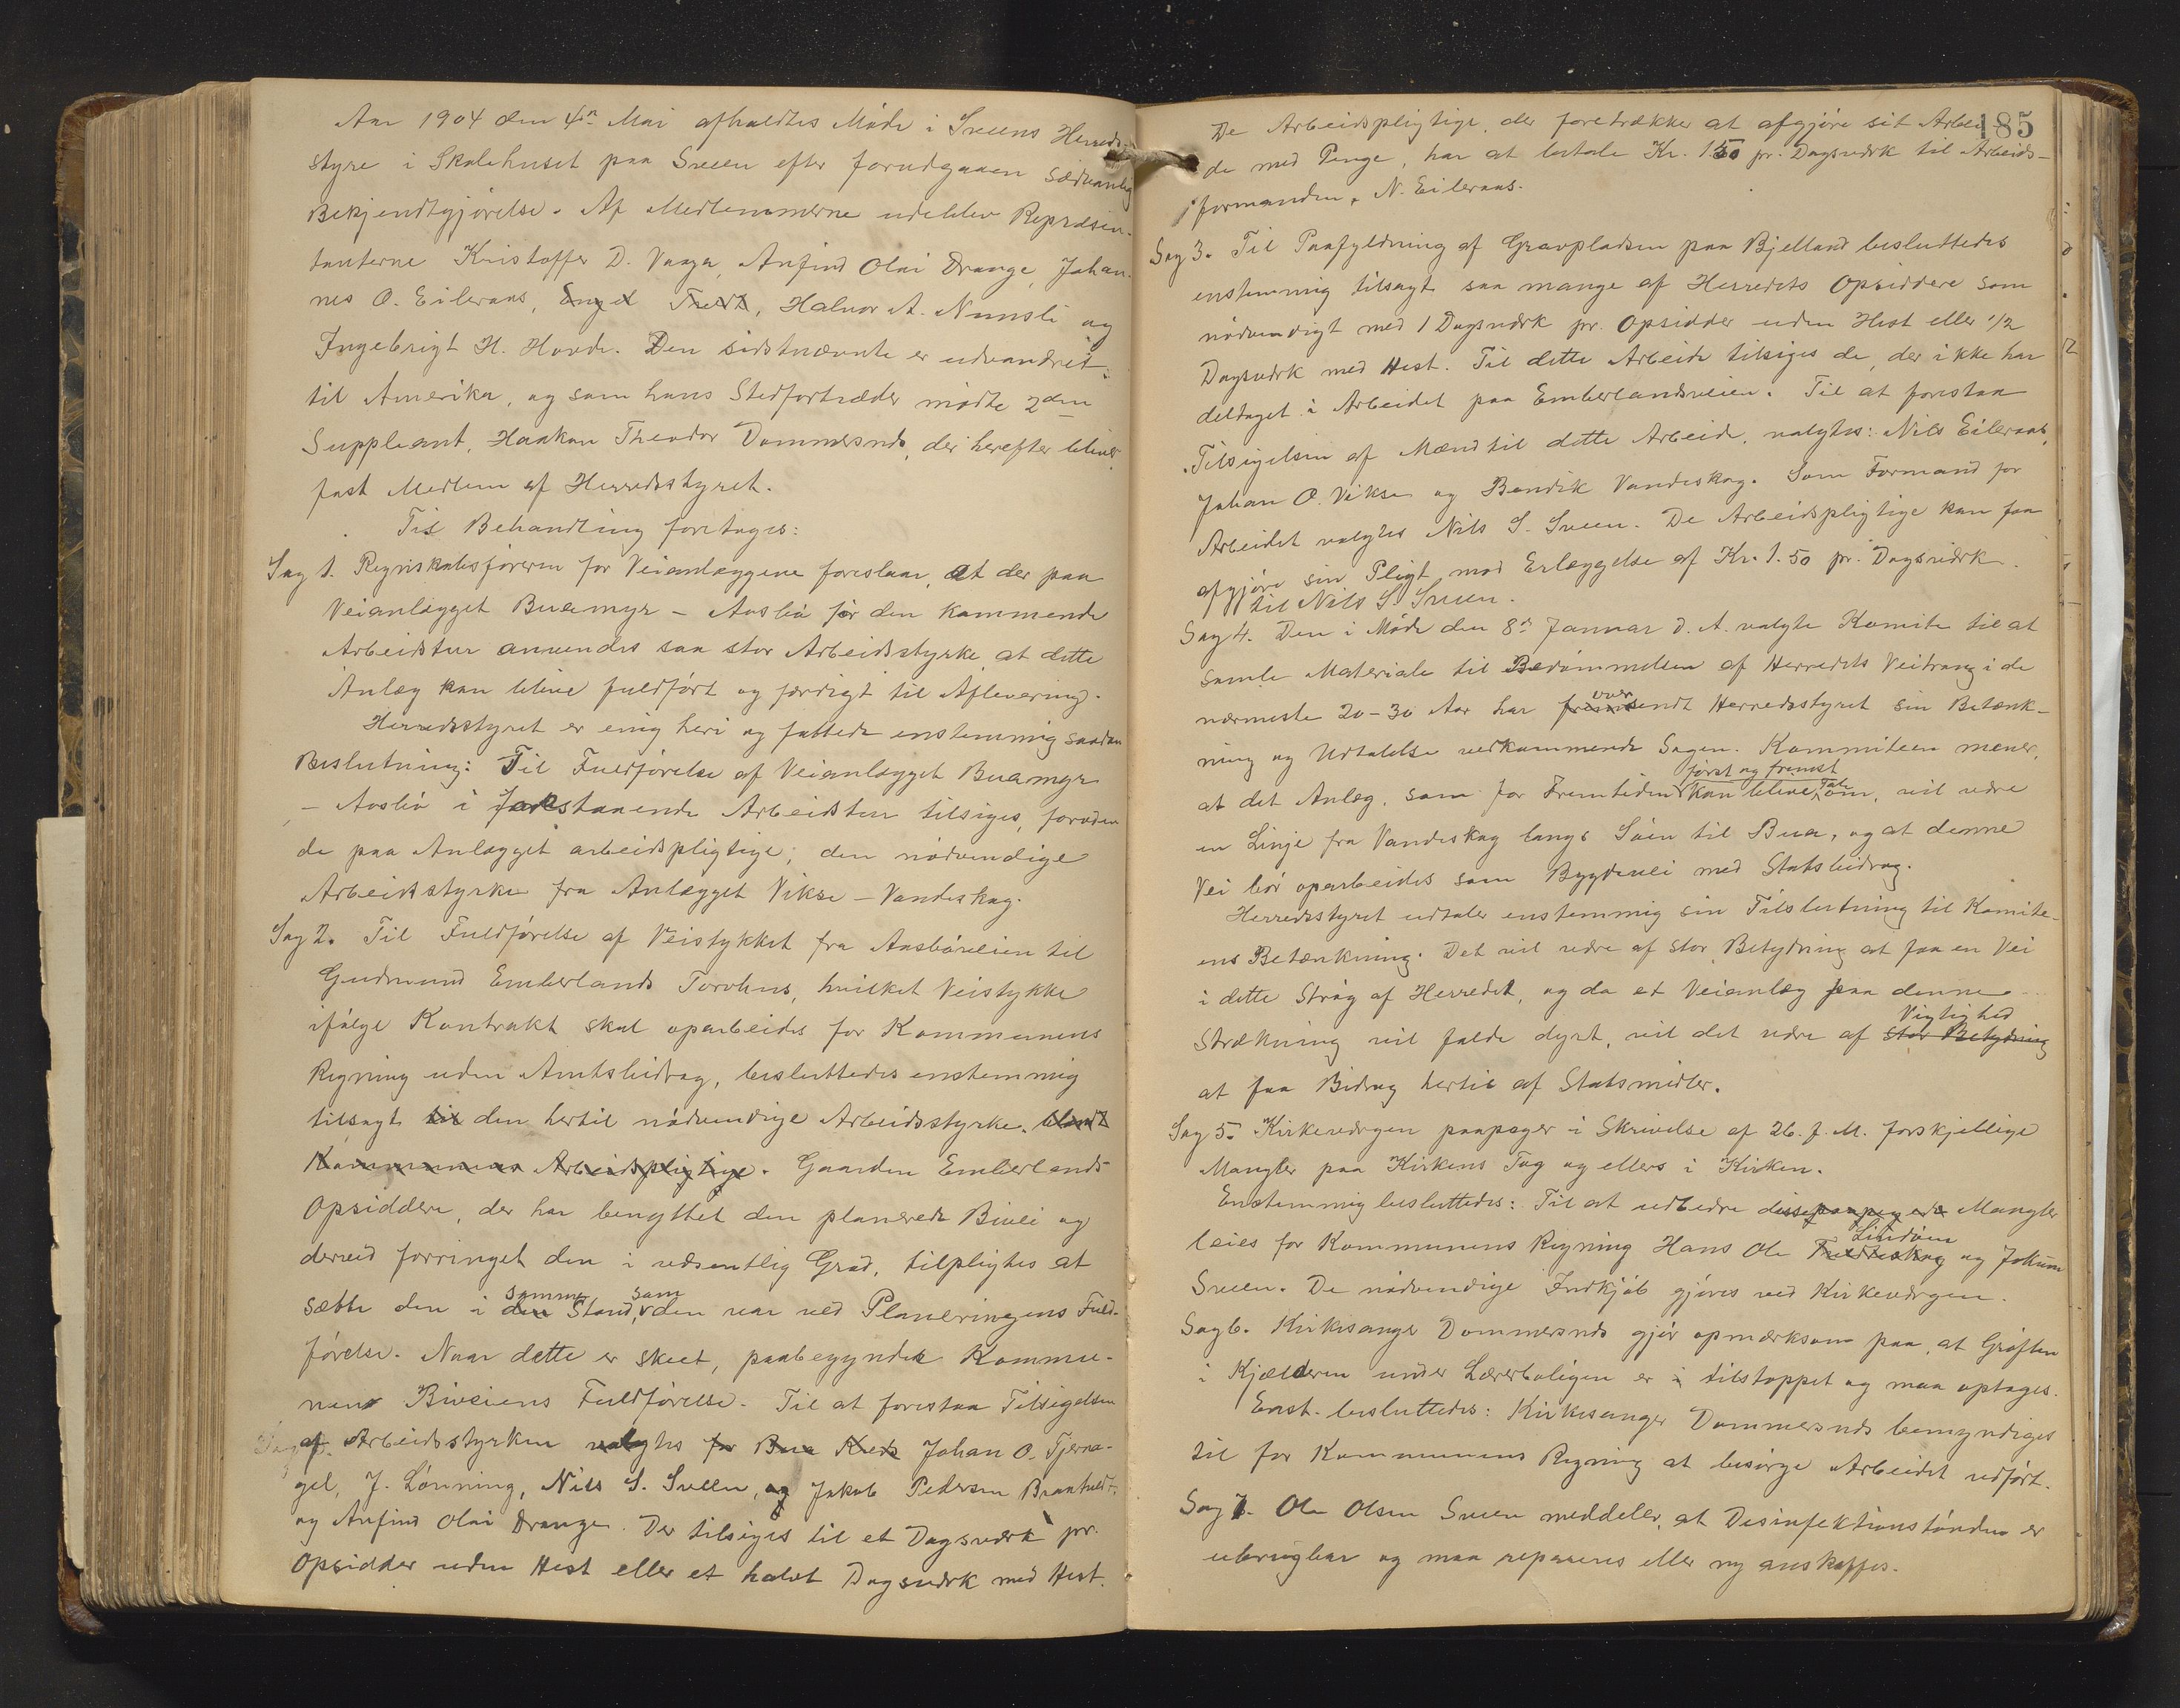 Aar 1904 den 4de Mai afholdtes Møde i Sveens Herreds-
styre i Skolehuset paa Sveen efter forudgaaen sædvanlig
Bekjendtgjørelse. Af Medlemmerne udeblev Repræsen-
tanterne Kristoffer D. Vaaga, Anfind Olai Drange, Johan-
nes O. Eileraas, Engel Tveit, Halvor A. Nunsli og
Ingebrigt H. Hovde. Den sidstnævnte er udvandret
til Amerika, og som hans Stedfortræder mødte 2den
Suppleant, Haakon Theodor Dommersnds, der herefter bliver
fast Medlem af Herredsstyret.
Til Behandling foretoges:
Sag 1. Regnskabsføreren for Veianlæggene foreslaar, at der paa
Veianlægget Buamyr - Aasbø før den kommende
Arbeidstur anvendes saa stor Arbeidsstyrke, at dette
Anlæg kan blive fuldført og færdigt til Aflevering.
Herredsstyret er enig heri og fattede enstemmig saadan
Beslutning: Til Fuldførelse af Veianlægget Buamyr
- Aasbø i forestaaende Arbeidstur tilsiges, foruden
de paa Anlægget arbeidspligtige, den nødvendige
Arbeidsstyrke fra Anlægget Vikse - Vandeskog.
Sag 2. Til Fuldførelse af Veistykket fra Aasbøveien til
Gudmund Emberlands Torvhus, hvilket Veistykke
ifølge Kontrakt skal oparbeides for Kommunens
Regning uden Amtsbidrag, besluttedes enstemmig
tilsagt til den hertil nødvendige Arbeidsstyrke. blandt
Kommunens Arbeidspligtige. Gaarden Emberlands
Opsiddere, der har benyttet den planerede Bivei og
derved forringet den i væsentlig Grad, tilpligtes at
samme som
sætte den i den Stand, den var ved Planeringens Fuld-
førelse. Naar dette er skeet, paabegynder Kommu-
nen Biveiens Fuldførelse. Til at forestaa Tilsigelsen
af Arbeidsstyrken valgtes for Bua Kreds Johan O. Tjerna-
gel, J. Lønning, Nils S. Sveen, og Jakob Pedersen Brautvedt
og Anfind Olai Drange. Der tilsiges til et Dagsværk pr.
Opsidder uden Hest eller et halvt Dagsværk med Hest.
185
De Arbeidspligtige, der foretrækker at afgjøre sit Arbei-
de med Penge, har at betale Kr. 1.50 pr. Dagsværk til Arbeids-
formanden, N. Eileraas.
Sag 3. Til Paafyldning af Gravpladsen paa Bjelland besluttedes
enstemmig tilsagt saa mange af Herredets Opsiddere som
nødvendigt med 1 Dagsværk pr. Opsidder uden Hest eller 1/2
Dagsværk med Hest. Til dette Arbeide tilsiges de, der ikke har
deltaget i Arbeidet paa Emberlandsveien. Til at forestaa
Tilsigelsen af Mænd til dette Arbeide, valgtes: Nils Eileraas,
Johan O. Vikse og Bendik Vandeskog. Som Formand for
Arbeidet valgtes Nils S. Sveen. De Arbeidspligtige kan faa
afgjøre sin Pligt mod Erlæggelse af Kr. 1.50 pr. Dagsværk
til Nils S. Sveen.
Sag 4. Den i Møde den 8de Januar d. A. valgte Komite til at
samle Materiale til Bedømmelsen af Herredets Veitrang i de
over
nærmeste 20-30 Aar har fremsendt Herredsstyret sin Betænk-
ning og Udtalelse vedkommende Sagen. Kommiteen mener,
først og fremst
Tale
at det Anlæg, som for Fremtiden kan blive om, vil være
en Linje fra Vandeskog langs Søen til Bua, og at denne
Vei bør oparbeides som Bygdevei med Statsbidrag.
Herredsstyret udtaler enstemmig sin Tilslutning til Komite-
ens Betænkning. Det vil være af stor Betydning at faa en Vei
i dette Strøg af Herredet, og da et Veianlæg paa denne
Vigtighed
Strækning vil falde dyrt, vil det være af stor Betydning
at faa Bidrag hertil af Statsmidler.
Sag 5. Kirkeværgen paapeger i Skrivelse af 26. f. M. forskjellige
Mangler paa Kirkens Tag og ellers i Kirken.
Enstemmig besluttedes: Til at udbedre disse paapegede Mangler
Lindøen
leies for Kommunens Regning Hans Ole og Jokum
Sveen. De nødvendige Indkjøb gjøres ved Kirkeværgen.
Sag 6. Kirkesanger Dommersnds gjør opmærksom paa, at Grøften
i Kjælderen under Lærerboligen er i tilstoppet og maa optages.
Enst. besluttedes: Kirkesanger Dommersnds bemyndiges
til for Kommunens Regning at besørge Arbeidet udført.
Sag 7. Ole Olsen Sveen meddeler, at Desinfektionstønden er
ubrugbar og maa repareres eller ny anskaffes.